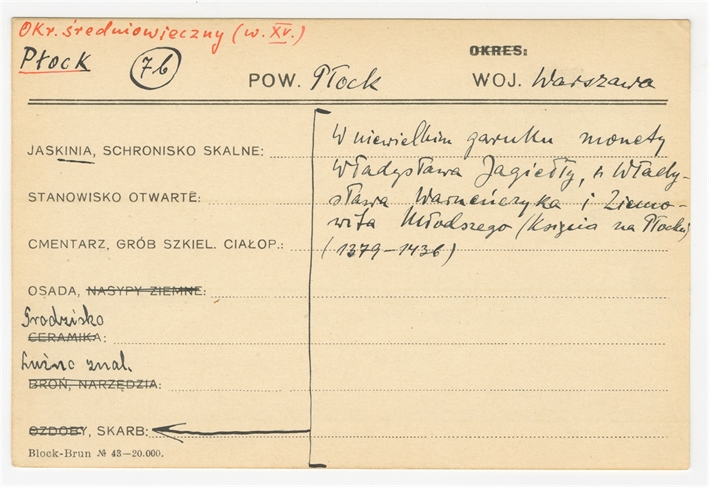 Okr. średniowieczny (w. XV.)
Płock
7b
OKRES:
POW. Płock WOJ. Warszawa
JASKINIA, SCHRONISKO SKALNE:
STANOWISKO OTWARTE:
CMENTARZ, GRÓB SZKIEL. CIAŁOP.:
OSADA, NASYPY ZIEMNE:
Grodzisko
CERAMIKA:
Luźne znal.
BROŃ, NARZĘDZIA:
OZDOBY, SKARB:
Block-Brun № 43—20.000.
W niewielkim garnku monety
Władysława Jagiełły, Włady-
sława Warneńczyka i Ziemo-
wita Młodszego (Księcia na Płocku)
(1379-1436)